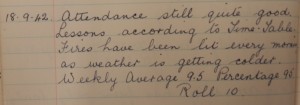 18.9.42 Attendance still quite good.
Lessons according to Time-Table.
Fires have been lit every
as weather is getting colder.
Weekly Average 9.5 Percentage
Roll 10.